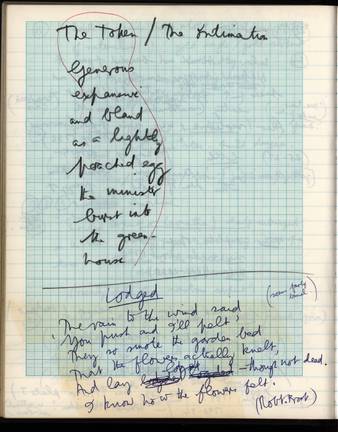 The Token / The Intimation
Generous
expansive
and bland
as a lightly
poached egg
the minister
burst into
the green-
house
Lodged
The rain to the wind said
'You push and I'll pelt'
They so smote the garden bed
That the flowers actually knelt,
And lay lodged – though not dead.
I know how the flowers felt.
(Robt. Frost)